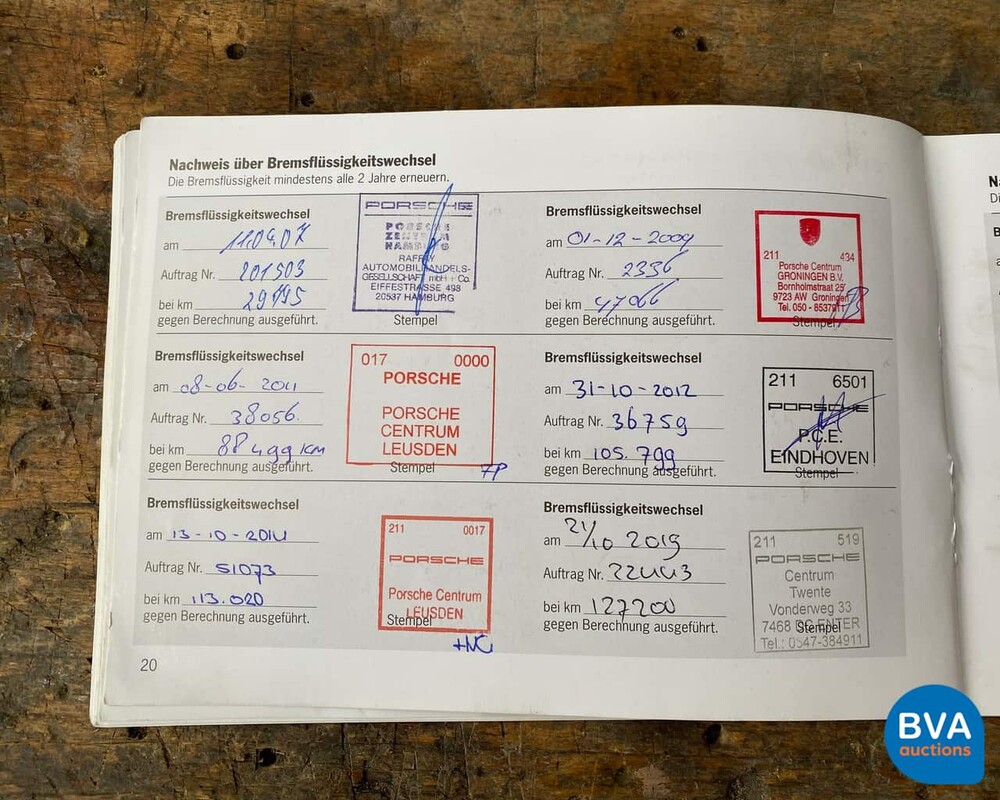 Nachweis über Bremsflüssigkeitswechsel
Die Bremsflüssigkeit mindestens alle 2 Jahre erneuern.
Bremsflüssigkeitswechsel
am 11.04.07
Auftrag Nr. 201503
bei km 29195
gegen Berechnung ausgeführt.
PORSCHE
PORSCHE
ZENTRUM
HAMBURG
RAFFAY
AUTOMOBILHANDELS-
GESELLSCHAFT mbH + Co.
EIFFESTRASSE 498
20537 HAMBURG
Stempel
Bremsflüssigkeitswechsel
am 01-12-2009
Auftrag Nr. 2336
bei km 47066
gegen Berechnung ausgeführt.
211 434
Porsche Centrum
GRONINGEN B.V.
Bornholmstraat 25
9723 AW Groningen
Tel. 050 - 8537911
Stempel
Bremsflüssigkeitswechsel
am 08-06-2011
Auftrag Nr. 38056
bei km 88499 KM
gegen Berechnung ausgeführt.
017 0000
PORSCHE
PORSCHE
CENTRUM
LEUSDEN
Stempel
Bremsflüssigkeitswechsel
am 31-10-2012
Auftrag Nr. 36759
bei km 105.799
gegen Berechnung ausgeführt.
211 6501
PORSCHE
P.C.E.
EINDHOVEN
Stempel
Bremsflüssigkeitswechsel
am 13-10-2014
Auftrag Nr. 51073
bei km 113.020
gegen Berechnung ausgeführt.
211 0017
PORSCHE
Porsche Centrum
LEUSDEN
Stempel
Bremsflüssigkeitswechsel
am 21/10 2019
Auftrag Nr. 22443
bei km 127200
gegen Berechnung ausgeführt.
211 519
PORSCHE
Centrum
Twente
Vonderweg 33
7468 DC ENTER
Tel.: 0547-384911
Stempel
20
BVA
auctions